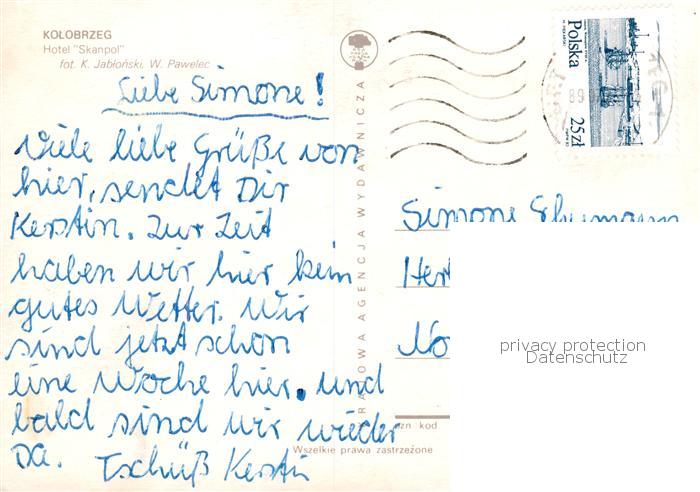 KOŁOBRZEG
Hotel "Skanpol"
fot. K. Jabłoński, W. Pawelec
Liebe Simone!
Viele liebe Grüße von
hier, sendet Dir
Kerstin. Zur Zeit
haben wir hier kein
gutes Wetter. Wir
sind jetzt schon
eine Woche hier. und
bald sind wir wieder
da. Tschüß Kerstin
AGENCJA WYDAWNICZA
Wszelkie prawa zastrzeżone
Polska
25 zł
89
Simone
Her
No
kod
privacy protection
Datenschutz